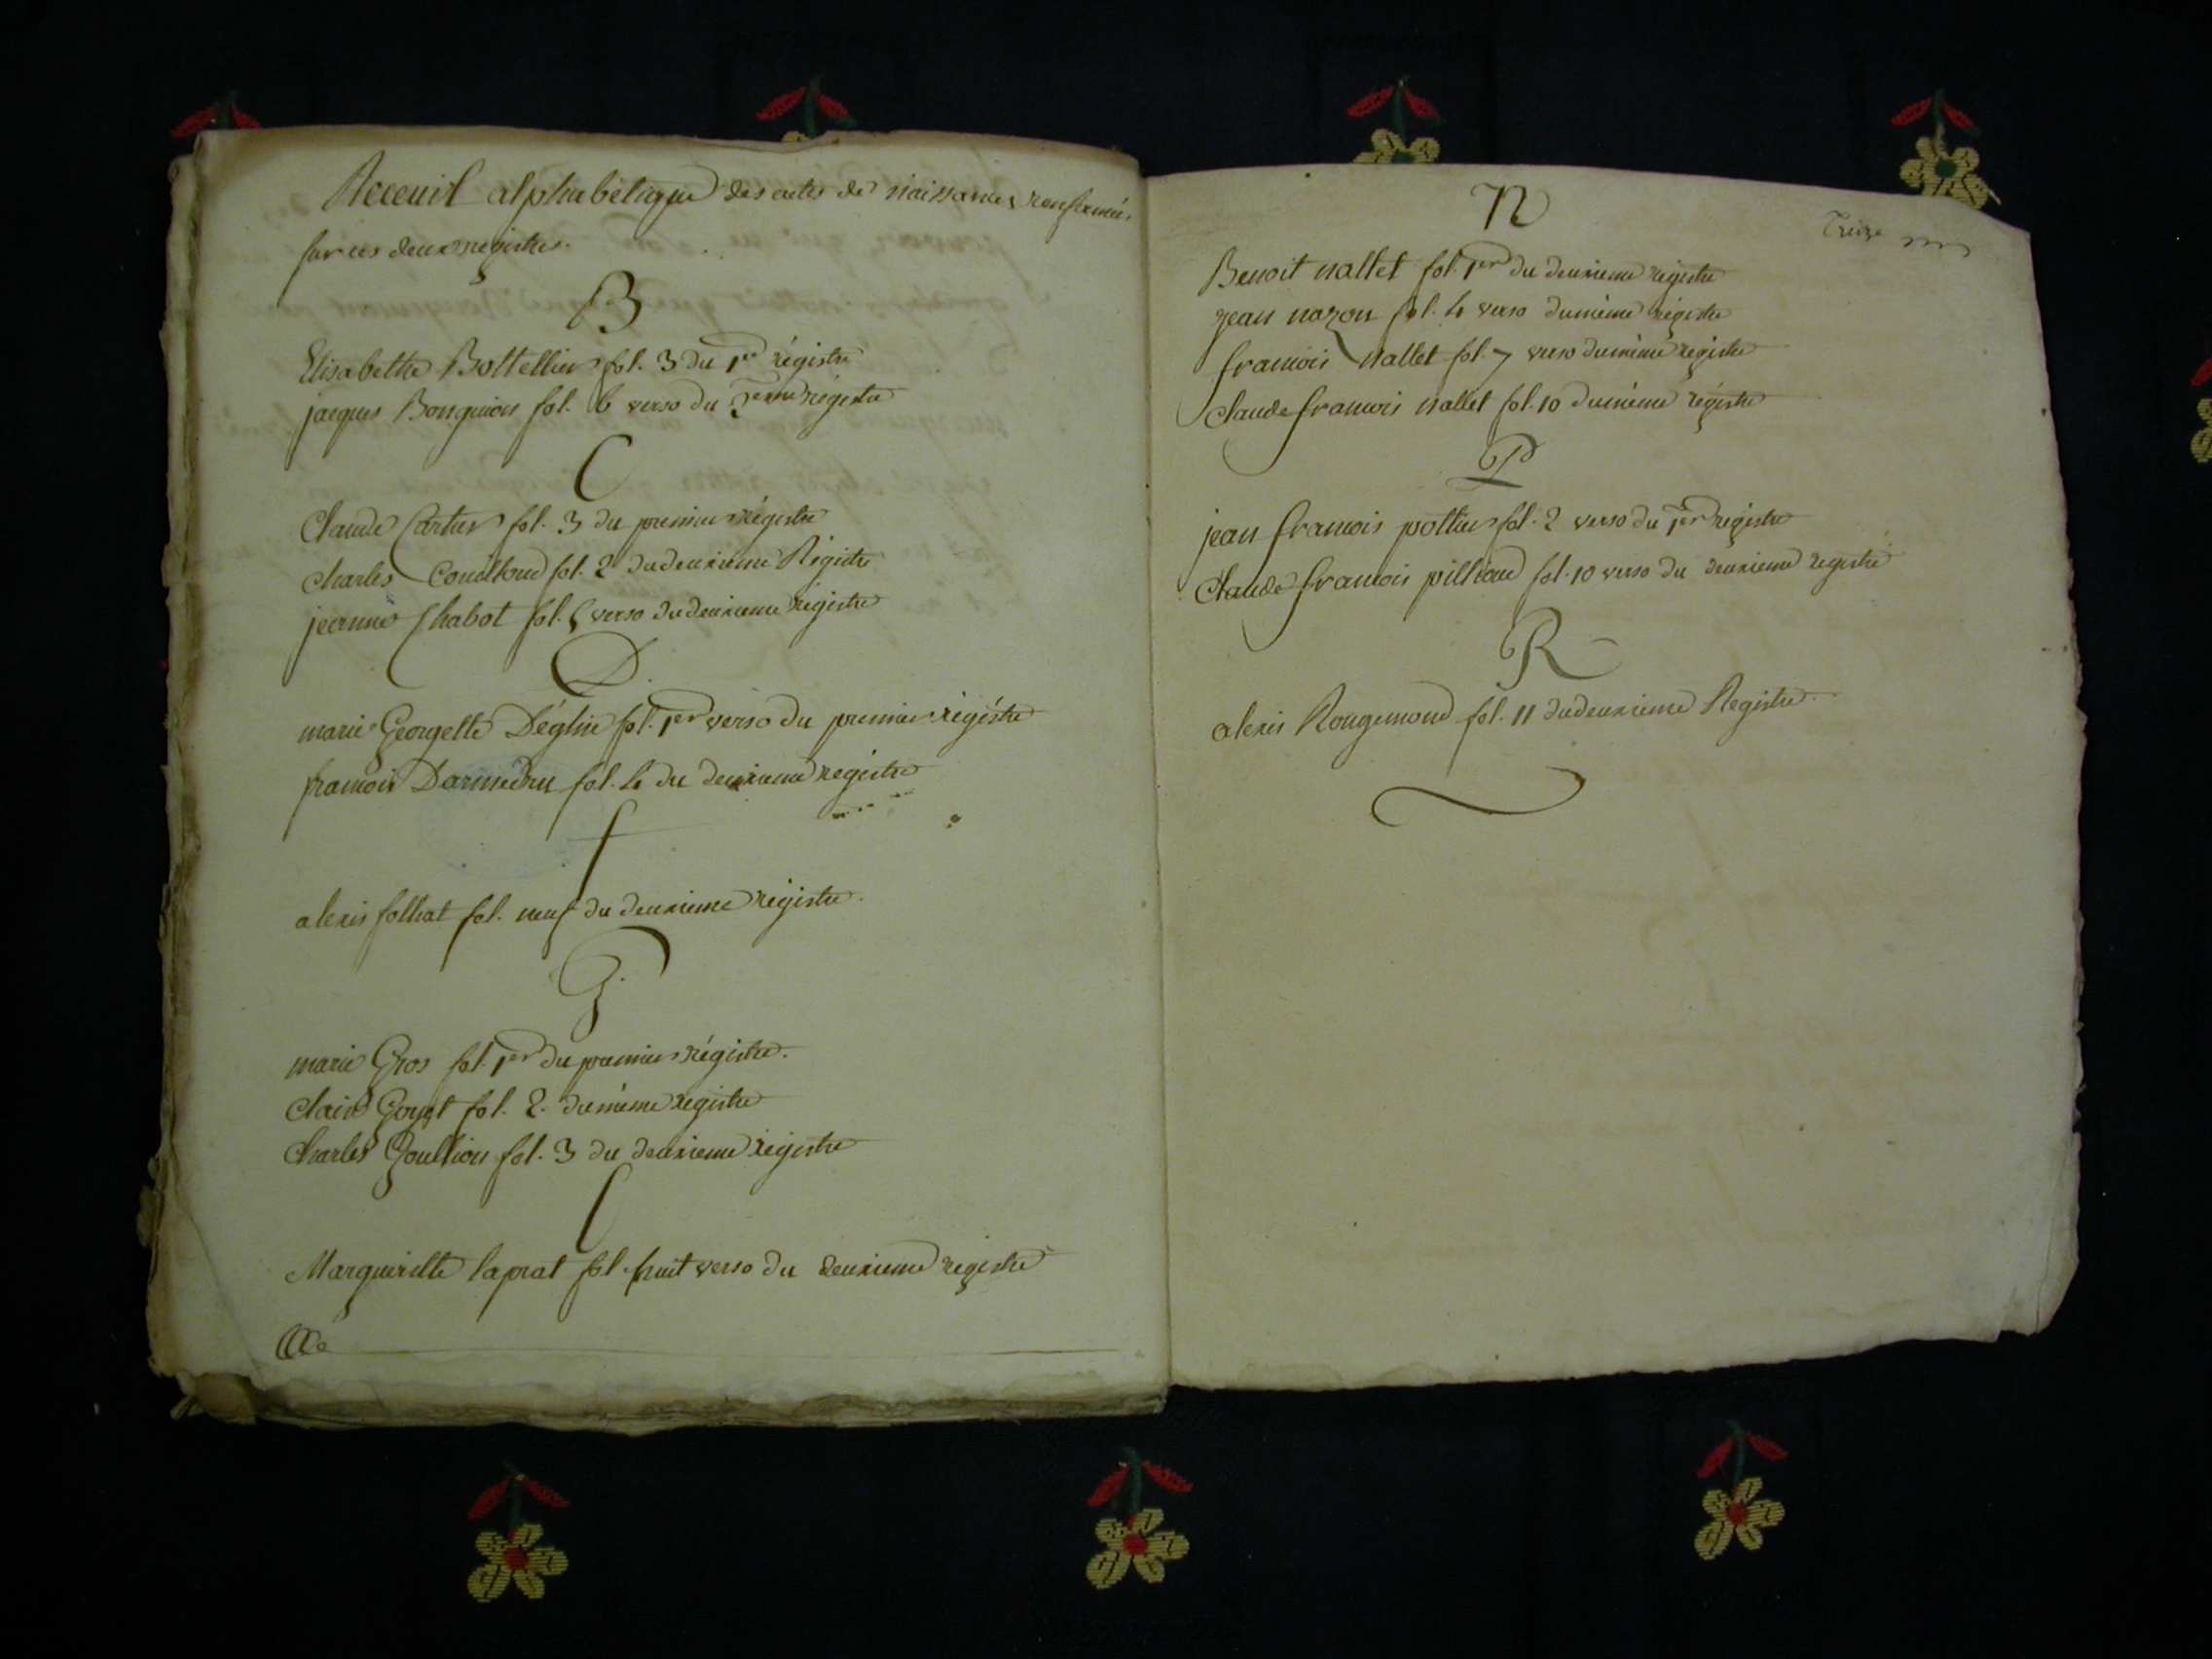 Receuil alphabétique des actes de naissances renfermés
sur ces deux registres.
B
Elisabethe Bottellier fol. 3 du 1er régistre
jacques Bonguiou fol. 6 verso du 2eme régistre
C
Claude Cartier fol. 3 du premier régistre
Charles Couilloud fol. 2 du deuxieme Régistre
jeanne Chabot fol. 5 verso du deuxieme régistre
D.
marie Georgette Déglise fol. 1er verso du premier régistre
francois Darmedru fol. 4 du deuxieme régistre
f
alexis folliat fol. neuf du deuxieme régistre.
G.
marie Gros fol. 1er du premier régistre.
Clair Goyet fol. 2. du même régistre
Charles Goullion fol. 3 du deuxieme régistre
L
Margueritte laprat fol. huit verso du deuxieme régistre
N
Treize
Benoit nallet fol. 1er du deuxieme régistre
jean nazon fol. 4 verso du même régistre
francois nallet fol. 7 verso du même régistre
Claude francois nallet fol. 10 du même régistre
P
jean francois pottier fol. 2 verso du 1er régistre
Claude francois pillioud fol. 10 verso du deuxieme régistre
R
alexis Rougemond fol. 11 du deuxieme Régistre.